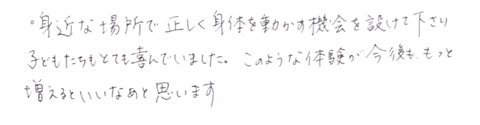 。身近な場所で正しく身体を動かす機会を設けて下さり
子どもたちもとても喜んでいました。このような体験が今後も、もっと
増えるといいなあと思います